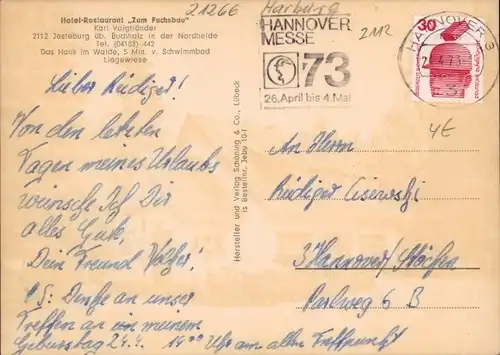 Hotel-Restaurant „Zum Fuchsbau"
Karl Voigtländer
2112 Jesteburg üb. Buchholz in der Nordheide
Tel. (04183) 442
Das Haus im Walde, 5 Min. v. Schwimmbad
Liegewiese
21266 Harburg
2112
HANNOVER
MESSE
'73
26. April bis 4. Mai
HANNOVER
30
4€
Lieber Rüdiger!
Von den letzten
Tagen meines Urlaubs
wünsche ich Dir
alles Gute,
Dein Freund Volker!
PS: Denke an unser
Treffen an meinem
Geburtstag 24.4. 14.00 Uhr am alten Treffpunkt
Hersteller und Verlag Schöning & Co., Lübeck
An Herrn
Rüdiger
3 Hannover
6 B